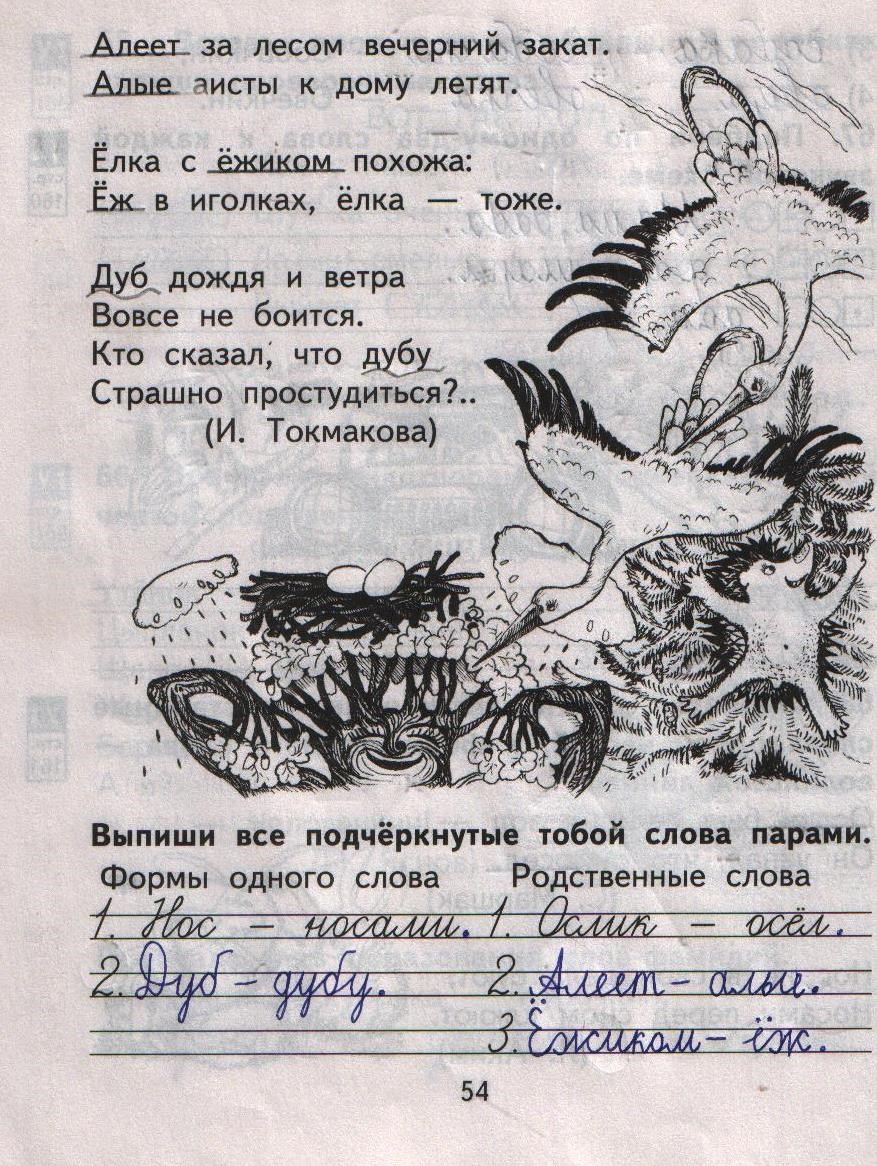 Алеет за лесом вечерний закат.
Алые аисты к дому летят.
Ёлка с ёжиком похожа:
Ёж в иголках, ёлка — тоже.
Дуб дождя и ветра
Вовсе не боится.
Кто сказал, что дубу
Страшно простудиться?..
(И. Токмакова)
Выпиши все подчёркнутые тобой слова парами.
Формы одного слова Родственные слова
1. Нос – носами. 1. Ослик – осёл.
2. Дуб – дубу. 2. Алеет – алые.
3. Ёжиком – ёж.
54